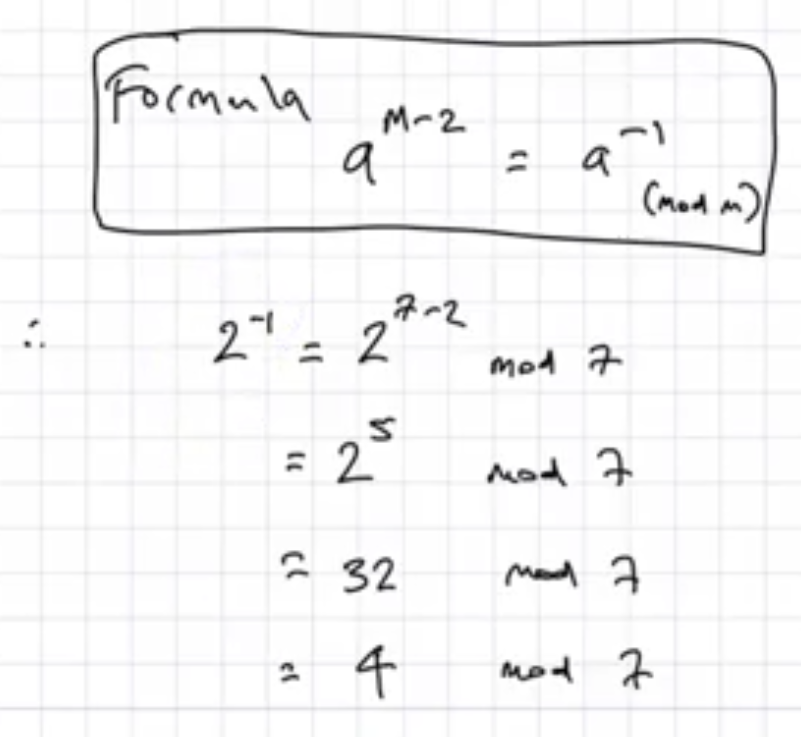 Formula
a^{M-2} = a^{-1} (mod m)
∴ 2^{-1} = 2^{7-2} mod 7
= 2^5 mod 7
= 32 mod 7
= 4 mod 7